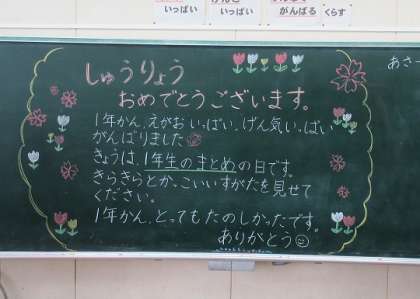 いっぱい
いっぱい
がんばる
くらす
あさ
しゅうりょう
おめでとうございます。
1年かん、えがおいっぱい、げん気いっぱい
がんばりました
きょうは、1年生のまとめの日です。
きらきらとかっこいいすがたを見せて
ください。
1年かん、とってもたのしかったです。
ありがとう